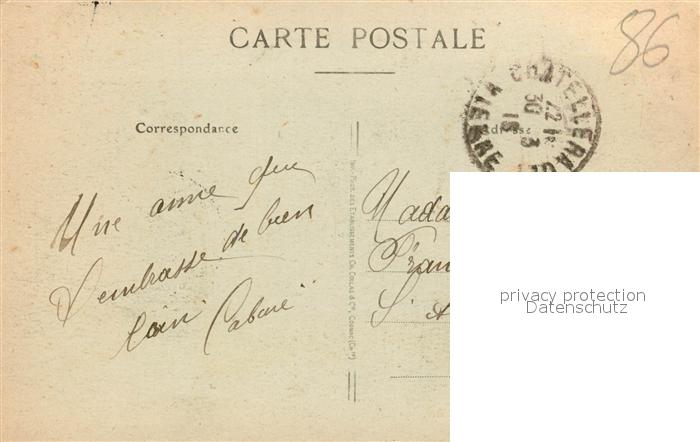 CARTE POSTALE
86
CHATELLERAULT
VIENNE
22 1R
30 3
18
Correspondance
Adresse
Une amie qui
t'embrasse de bien
loin
Mada
Fran
S
Imp. Phot. des Etablissements Ch. Collas & Cie, Cognac (Cte)
privacy protection
Datenschutz